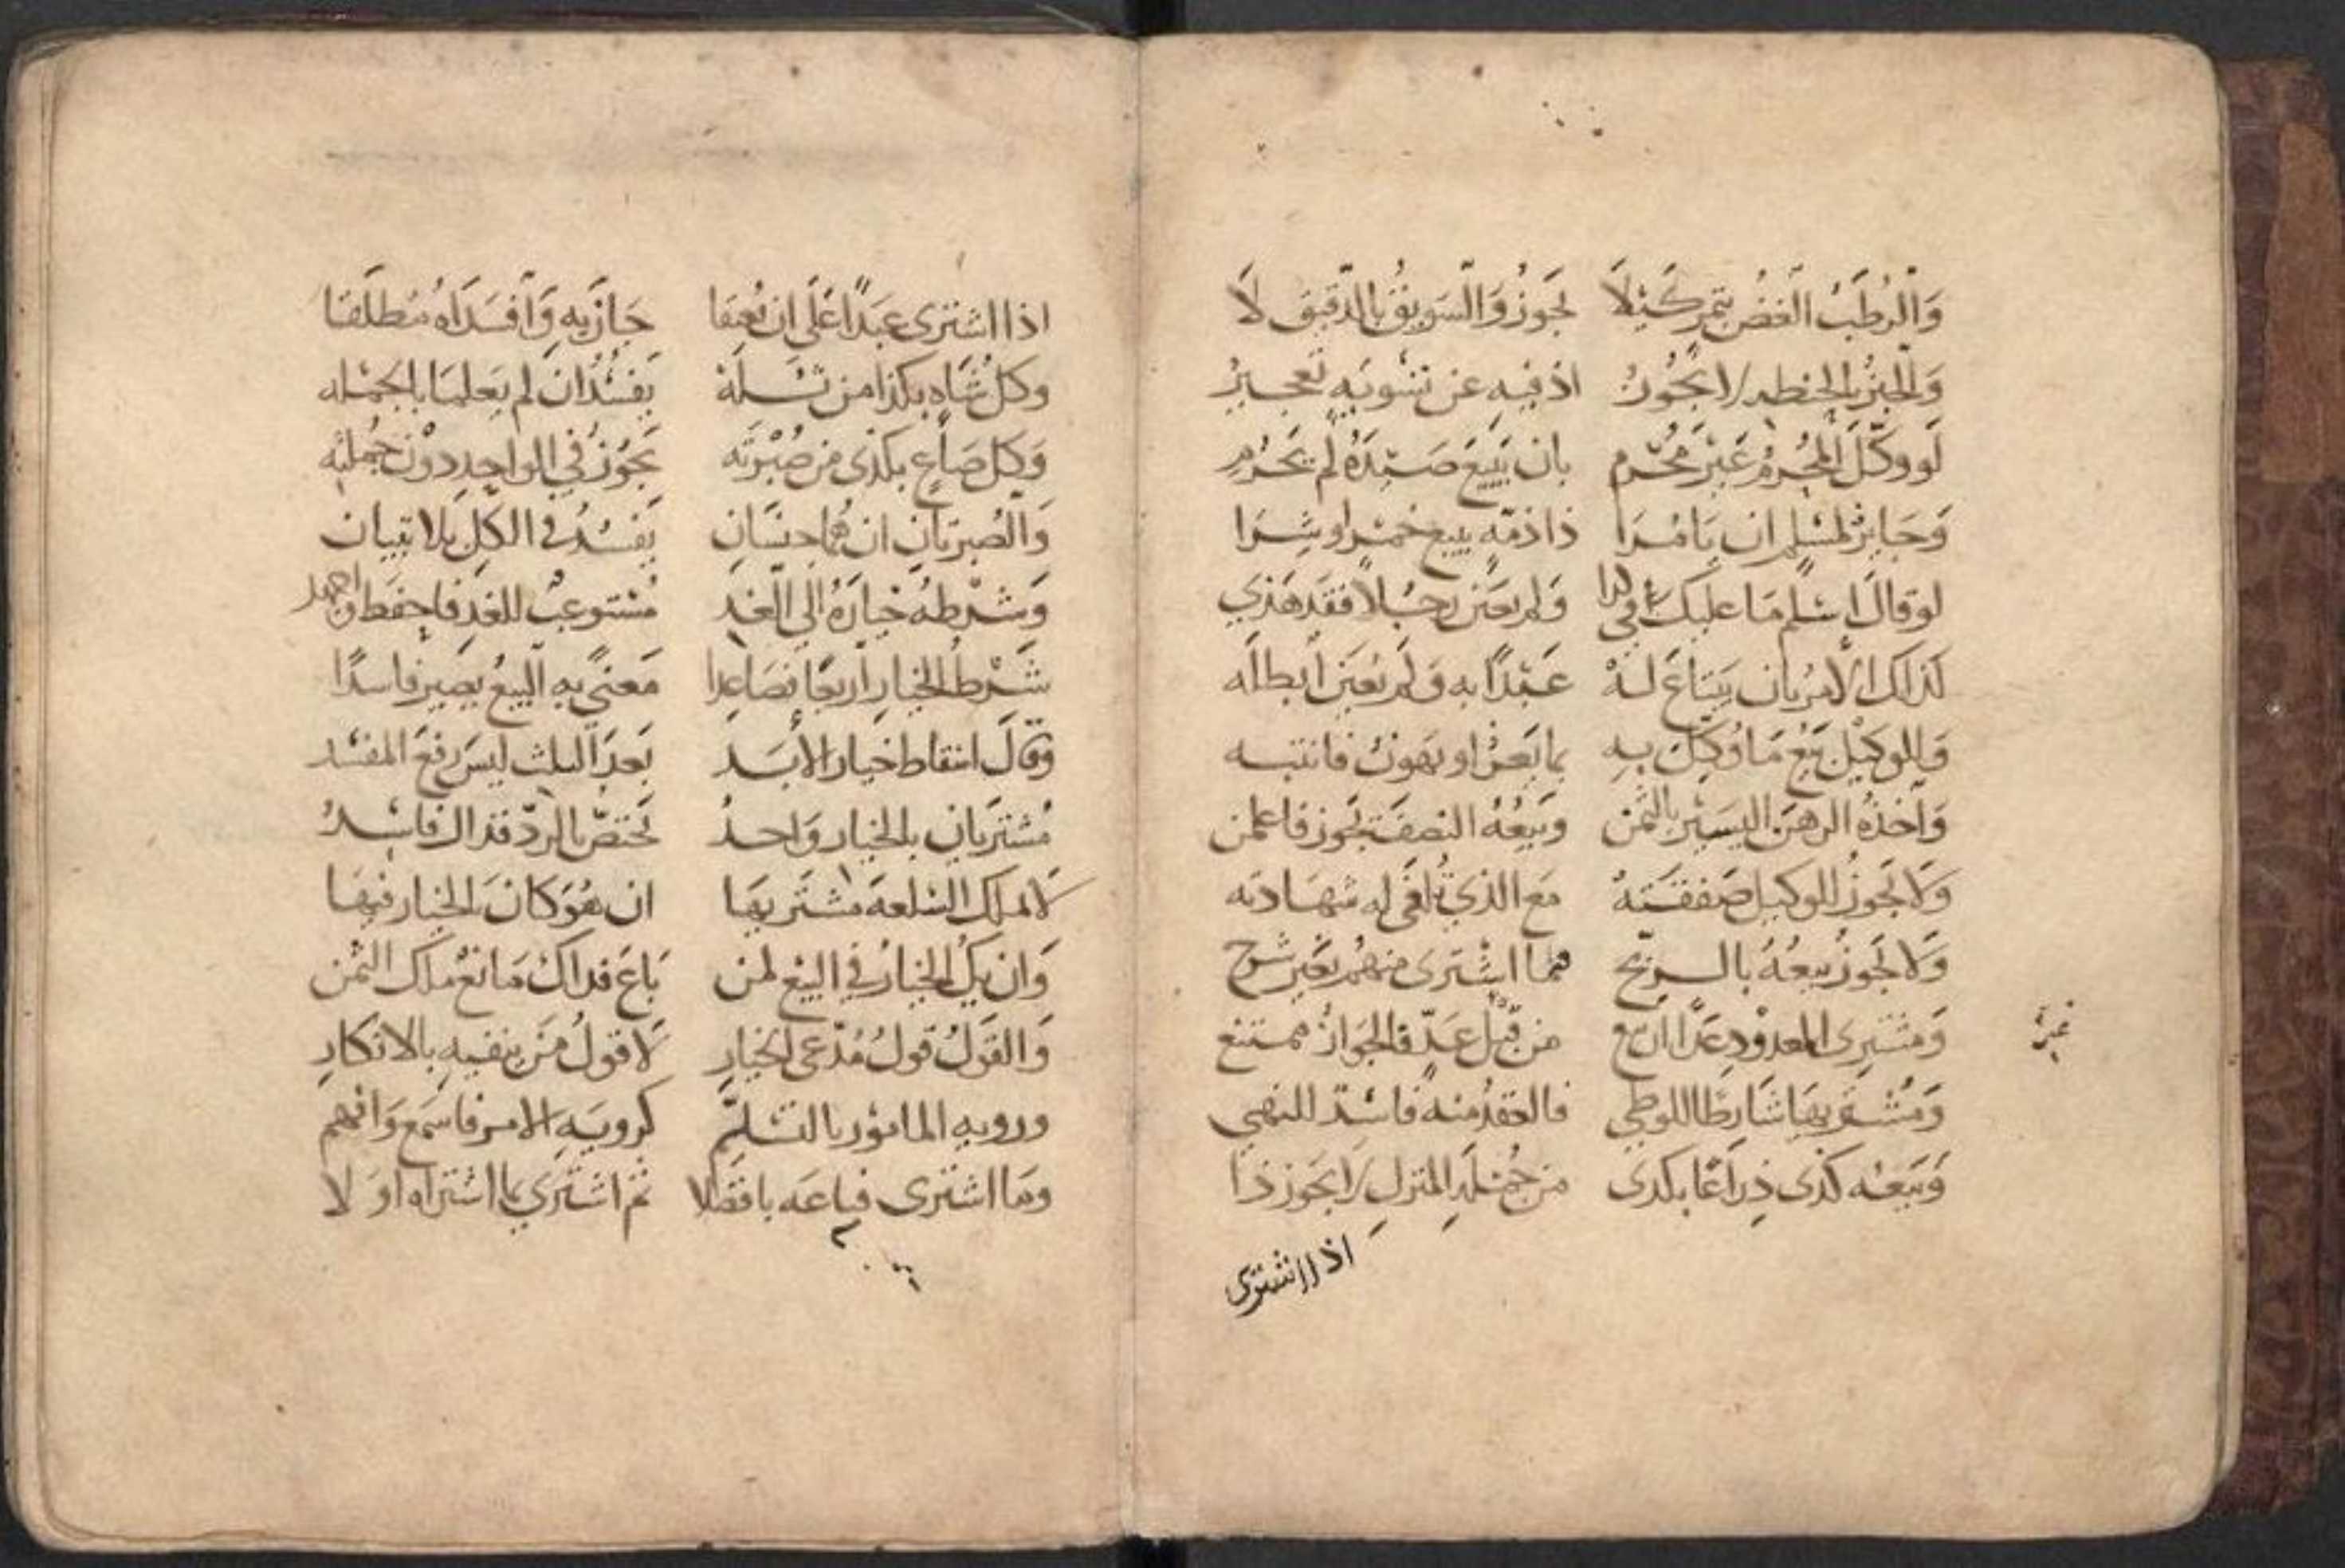 وَالرُطَبُ الغَضُ بِتمرٍ كَيْلَا يَجوزُ وَالسَويقُ بِالدَقيقِ لَا
وَالخبْزُ بالحنطه لا يجُوزُ اذ فيهِ عن تسْويَهٍ تعجيزُ
لَو وكّلَ المُحْرِمُ غَيْرَ مُحْرِم بان يَبيعَ صَيْدَهُ لَم يَحْرُمِ
وَجَايزٌ لمسْلمٍ ان يَامُرَا ذا ذمّهٍ ببيع خمْرٍ او شِرَا
لو قالَ اسْلم مَا عليك في كدا وَلم يعَيّن رجُلاً فقَد هَذي
كذلك الامرُ بان يَبتاعَ لهْ عَبْدًا به وَلم يُعَيّن ابطلَه
وَللوكيْل بَيْعُ مَا وُكّلَ بهِ بما يَعزّ او يَهونُ فانتبه
وَاخذُهُ الرهنَ اليَسيْر بالثَّمن وبَيعُهُ النصفَ يَجوز فاعلمن
وَلا يَجوزُ للوكيل صَفقتهُ مَع الذي تُلغى له شهَادته
وَلا يَجوزُ بيعُهُ بالربح مما اشْترَى منهُم بغَير شرح
وَمشْتَرِى المعدُوْدِ عَدًّا ان يبع من قبْل عَدٍّ فالجَوازُ ممتنع
وَمُشتَريهَا شَارِطًا للوطي فالعقدُ منه فاسْدٌ للنهي
وَبَيعُه كذى ذِراعًا بكدى من جُمْلَهِ المنزلِ لا يَجوز ذا
اذا اشترى
غيره
اذا اشترى عَبدًا عَلَى ان يُعتِقَا جَازَ بهِ وَافسَدَاهُ مُطلَقَا
وكلُ شَاهٍ بكذا من ثَلَّهْ يَفسُدُ ان لم يَعلمَا بالجمْله
وَكل صَاعٍ بكذى من صُبْرَتَه يَجوزُ في الواحدِ دوْن جُملته
وَالصُبرتانِ ان هُما جنسَانِ يَفسُدُ في الكلِّ بلا تبيان
وَشرْطهُ خيارَهُ الى الغَد مُسْتوعبٌ للغدِ فاحفظ واجهد
شَرْطُ الخيارِ اربعًا فصَاعِدا مَعنىً به البيعُ يَصيرُ فاسدًا
وَقالَ اسقاط خيار الأبَد بَعدَ الثلث ليسَ رفعَ المفسْد
مُشتريَانِ بالخيارِ وَاحدُ يَختصُّ بالردّ فذاك فاسدُ
لا يملك السلعهَ مشتريهَا ان هُوَ كانَ بالخيار فيهَا
وَان يكن الخيارُ في البيع لمن بَاعَ فذاكَ مَانعٌ ملك الثمن
وَالقوْلُ قولُ مُدّعى الخيارِ لا قولُ مَن ينفيهِ بالانكارِ
ورويه المامُور بالتسَلّمِ كرويَهِ الامر فاسمَع وَافهم
وَما اشترى فباعَه بافضَلا ثم اشتَرى بما اشتراه اوَلا